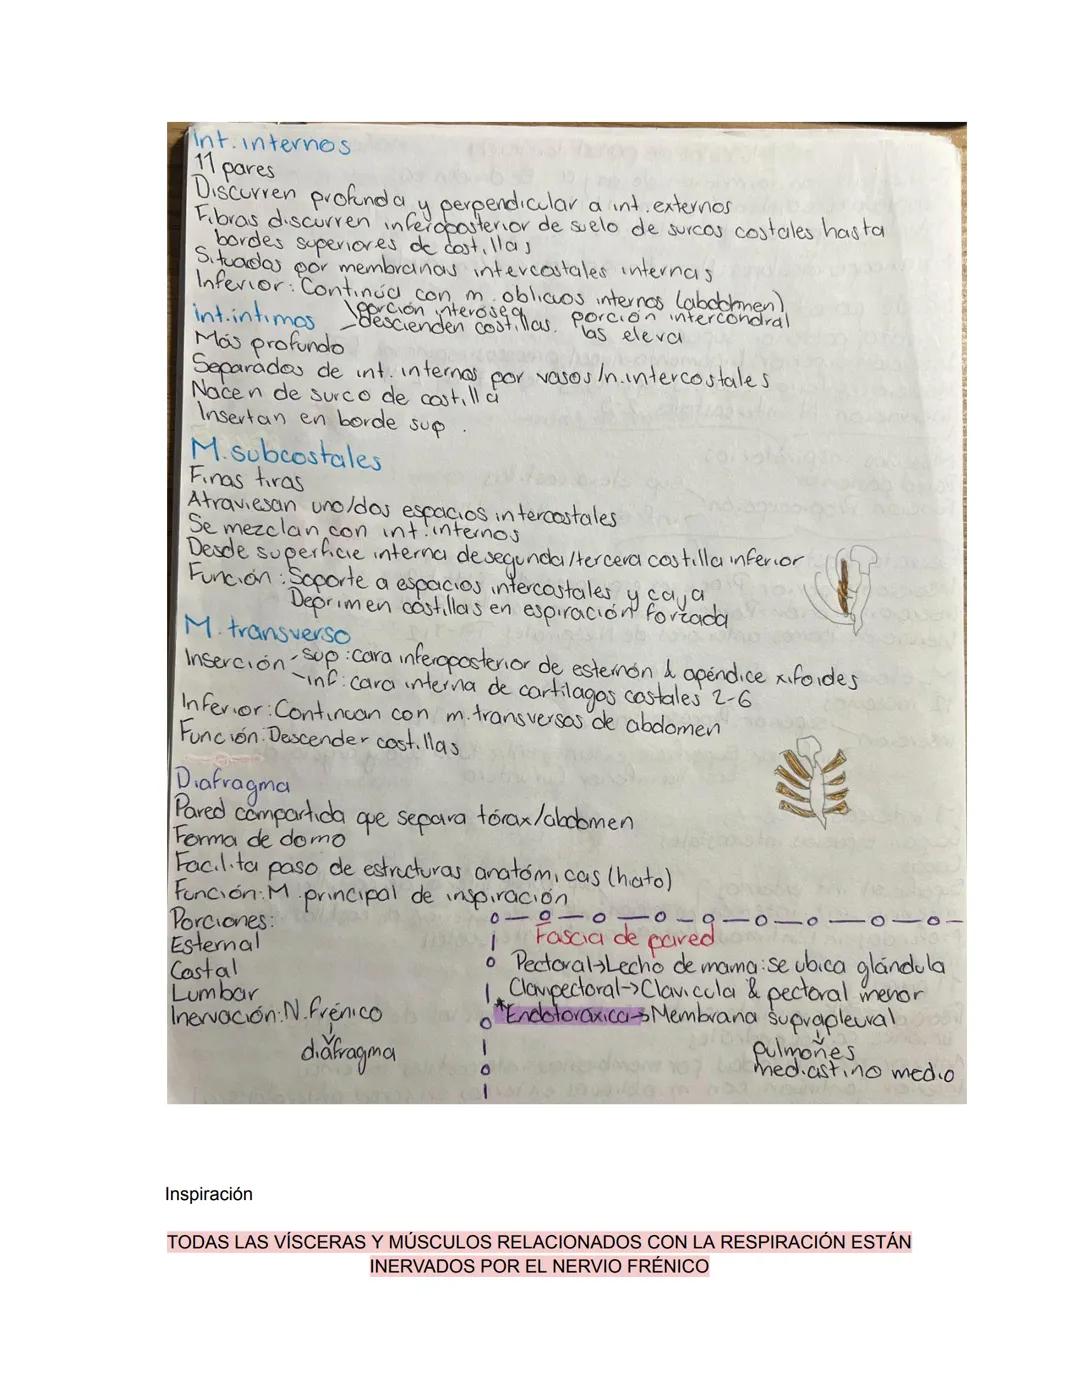 Int. internos
11 pares
Discurren profunda y perpendicular a int. externos
Fibras discurren inferoposterior de suelo de surcos costales hasta
bordes superiores de costillas
Situadas por membranas intercostales internas
Inferior: Continúa con m. oblicuos internos (abdomen)
porción interósea porción intercondral
int. íntimos descienden costillas. las eleva
Más profundo
Separados de int. internos por vasos/n. intercostales
Nacen de surco de costilla
Insertan en borde sup.
M. subcostales
Finas tiras
Atraviesan uno/dos espacios intercostales
Se mezclan con int. internos
Desde superficie interna de segunda/tercera costilla inferior
Función: Soporte a espacios intercostales y caja
Deprimen costillas en espiración forzada
M. transverso
Inserción sup: cara inferoposterior de esternón & apéndice xifoides
inf: cara interna de cartílagos costales 2-6
Inferior: Continuan con m. transversos de abdomen
Función: Descender costillas
Diafragma
Pared compartida que separa tórax/abdomen
Forma de domo
Facilita paso de estructuras anatómicas (hiato)
Función: M. principal de inspiración
Porciones:
Esternal
Costal
Lumbar
Inervación: N. frénico
diafragma
Fascia de pared
Pectoral→Lecho de mama: se ubica glándula
Clavipectoral→Clavicula & pectoral menor
*Endotoráxica→Membrana suprapleural
pulmones
mediastino medio
Inspiración
TODAS LAS VÍSCERAS Y MÚSCULOS RELACIONADOS CON LA RESPIRACIÓN ESTÁN
INERVADOS POR EL NERVIO FRÉNICO